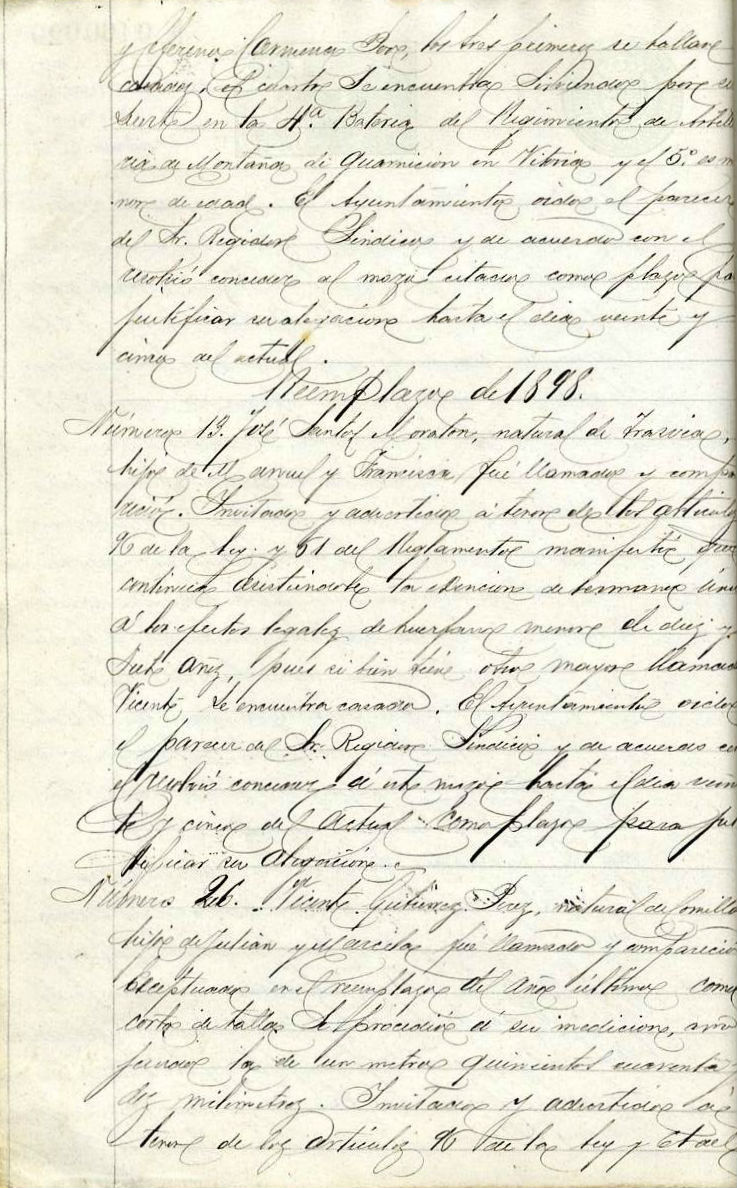 y Ceferino Carmena Pons, los tres primeros se hallan
casados, el cuarto se encuentra sirviendo por su
suerte en la 4.ª Bateria del Regimiento de Artill
ria de Montaña de guarnicion en Vitoria y el 5.º es m
nor de edad. El Ayuntamiento oido el parecer
del Sr. Regidor Sindico y de acuerdo con el
resolvió conceder al mozo citado como plazo pa
justificar su alegacion hasta el dia veinte y
cinco del actual.
Reemplazo de 1898.
Número 13. José Santos Moraton, natural de Trasvia,
hijo de Manuel y Francisca fué llamado y compa
reció. Invitado y advertido á tenor de los articulos
96 de la ley y 61 del Reglamento manifestó que
continua asistiendole la esencion de hermano úni
á los efectos legales de huerfano menor de diez y
siete años, pues si bien tiene otro mayor llamado
Vicente se encuentra casado. El Ayuntamiento oido
el parecer del Sr. Regidor Sindico y de acuerdo con
el resolvió conceder á este mozo hasta el dia vein
te y cinco del actual como plazo para jus
tificar su alegacion.
Número 26. Vicente Gutierrez Perez, natural de Comilla
hijo de Julian y Marcela fué llamado y compareció
Esceptuado en el reemplazo del año último como
corto de talla. Se procedió á su medicion,
la de un metro quinientos cuarenta y
dos milimetros. Invitado y advertido á
tenor de los articulos 96 de la ley y 61 del